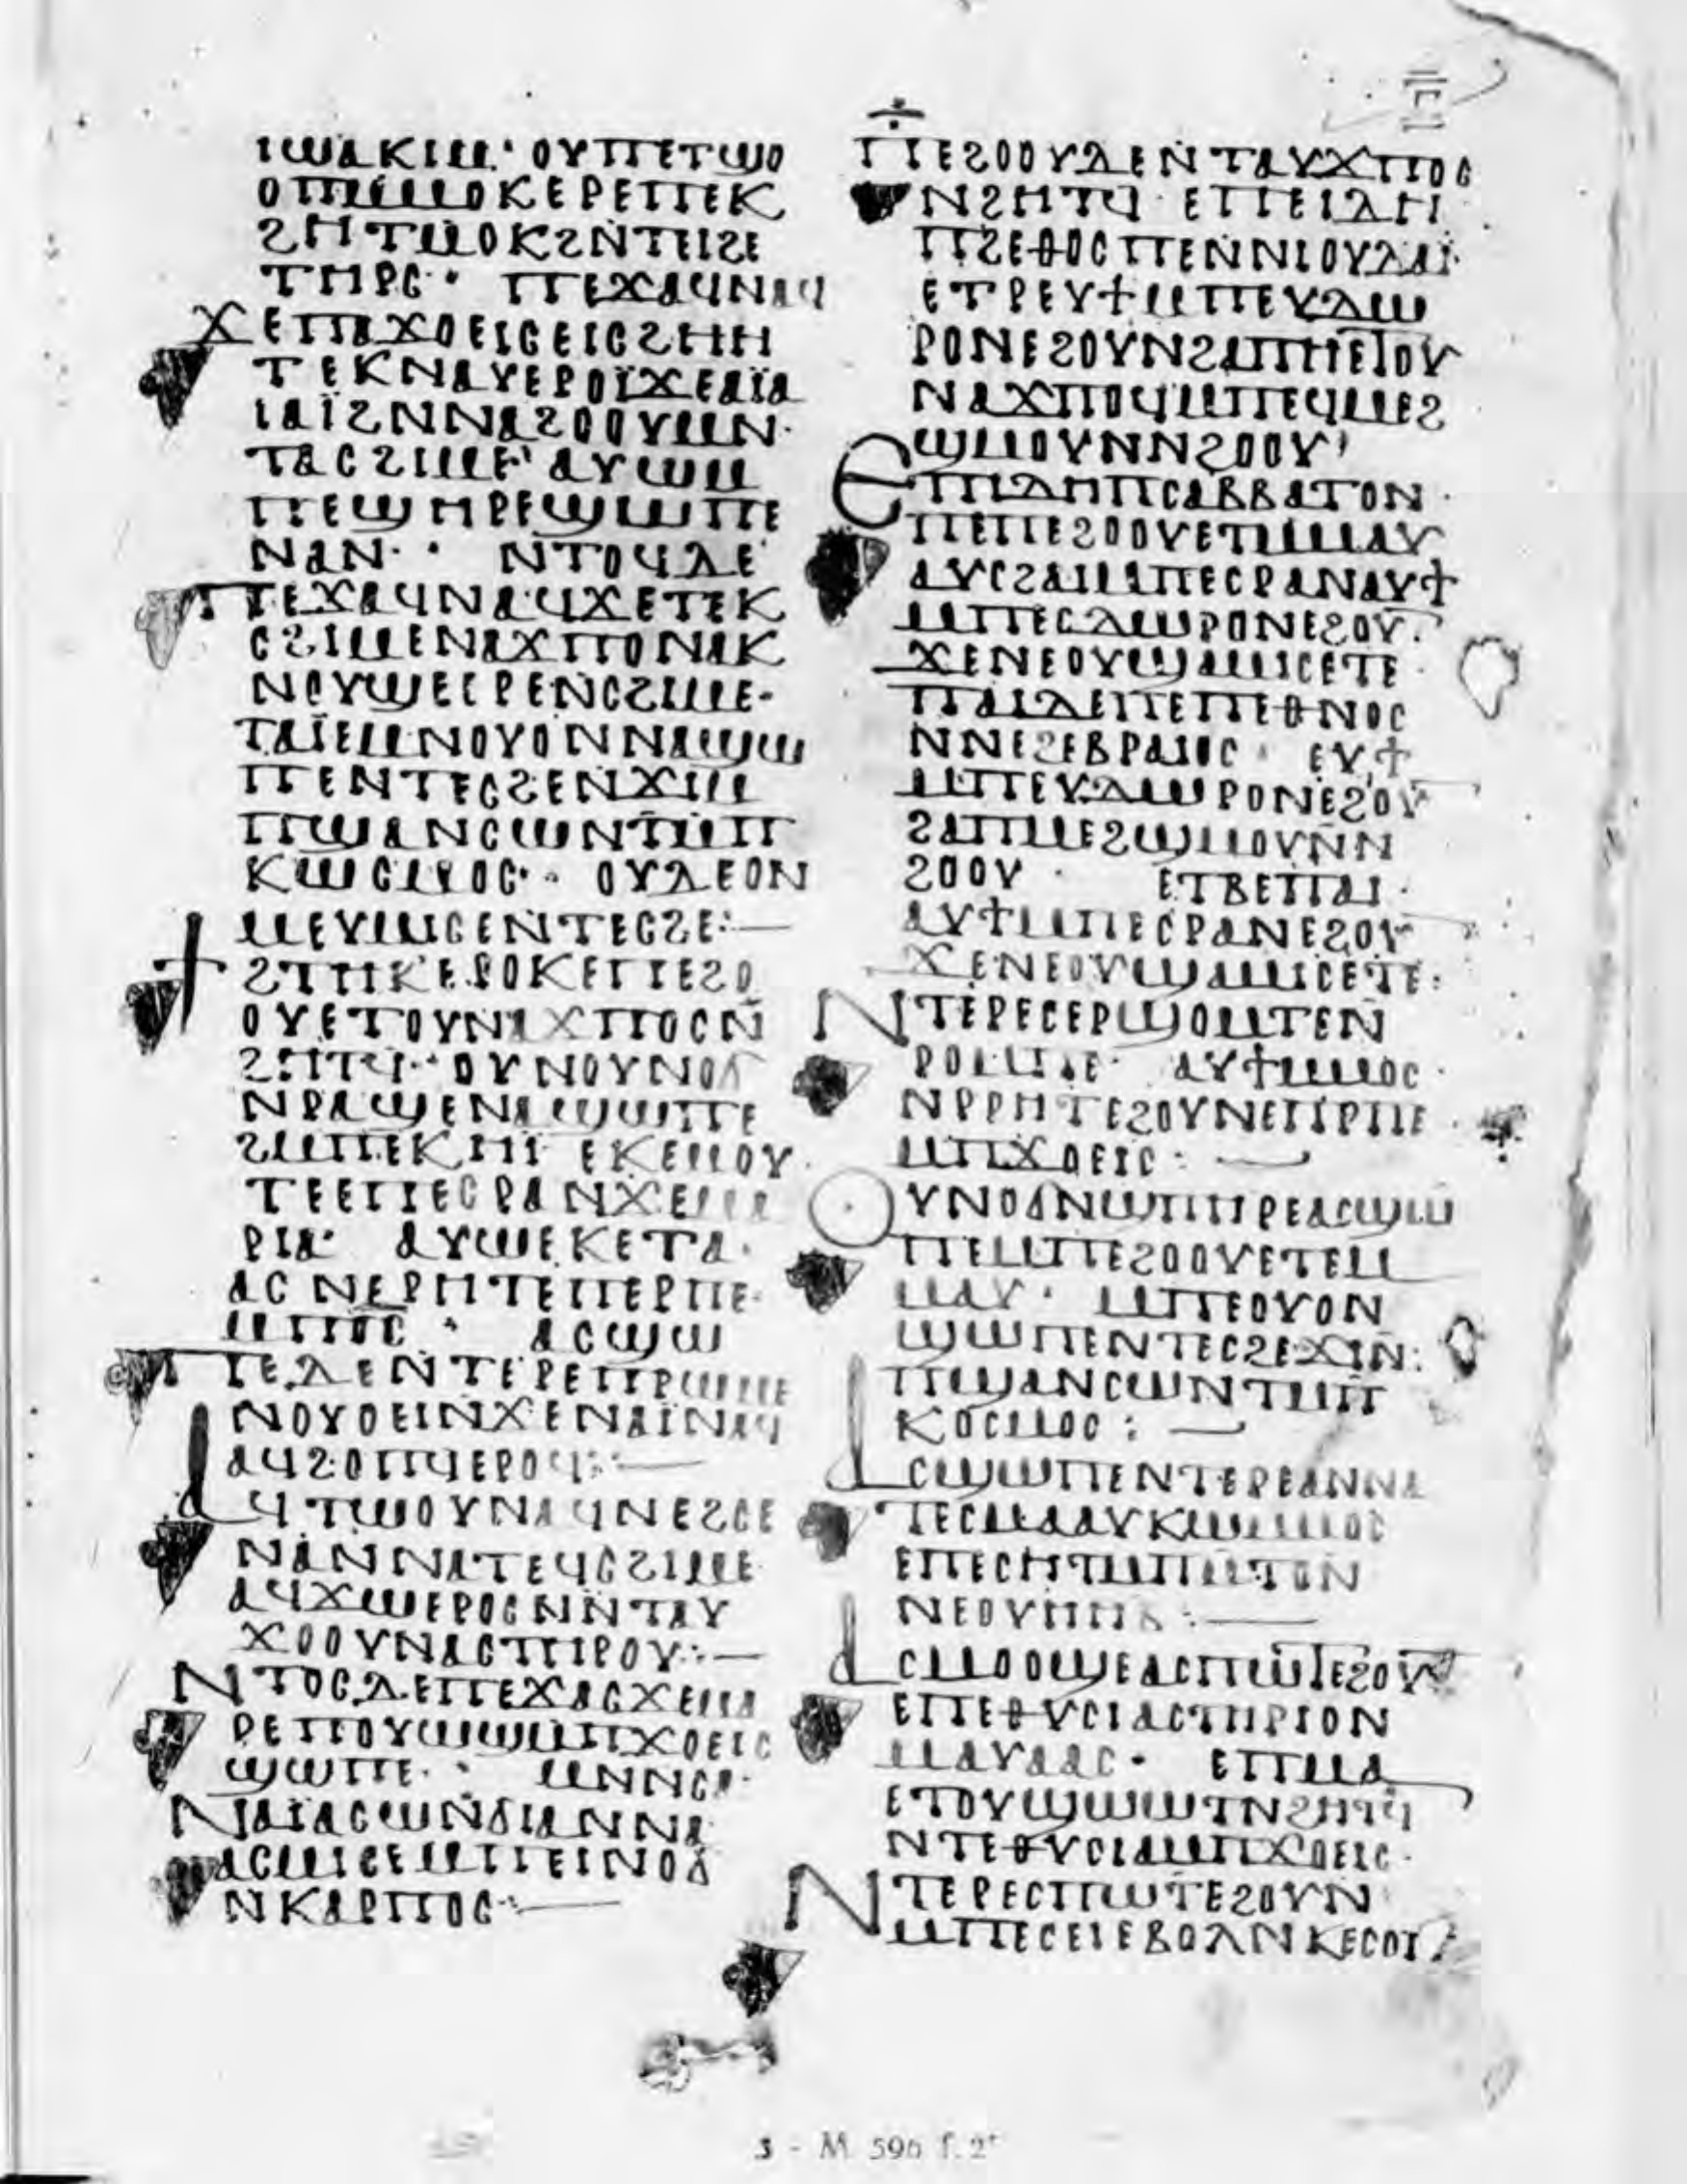 ⲅ
ⲓⲱⲁⲕⲓⲙ· ⲟⲩⲡⲉⲧϣⲟ
ⲟⲡⲙⲙⲟⲕⲉⲣⲉⲡⲉⲕ
ϩⲏⲧⲙⲟⲕϩⲛⲧⲉⲓϩⲉ
ⲧⲏⲣⲥ· ⲡⲉϫⲁϥⲛⲁϥ
ϫⲉⲡⲁϫⲟⲉⲓⲥⲉⲓⲥϩⲏⲏ
ⲧⲉⲕⲛⲁⲩⲉⲣⲟⲓ̈ϫⲉⲁⲓ̈ⲁ
ⲓⲁⲓ̈ϩⲛⲛⲁϩⲟⲟⲩⲙⲛ·
ⲧⲁⲥϩⲓⲙⲉ· ⲁⲩⲱⲙ
ⲡⲉϣⲏⲣⲉϣⲱⲡⲉ
ⲛⲁⲛ· ⲛⲧⲟϥⲇⲉ
ⲡⲉϫⲁϥⲛⲁϥϫⲉⲧⲉⲕ
ⲥϩⲓⲙⲉⲛⲁϫⲡⲟⲛⲁⲕ
ⲛⲟⲩϣⲉⲉⲣⲉⲛⲥϩⲓⲙⲉ·
ⲧⲁⲓ̈ⲉⲙⲛⲟⲩⲟⲛⲛⲁϣⲱ
ⲡⲉⲛⲧⲉⲥϩⲉⲛϫⲓⲙ
ⲡϣⲁⲛⲥⲱⲛⲧⲙⲡ
ⲕⲱⲥⲙⲟⲥ· ⲟⲩⲇⲉⲟⲛ
ⲙⲉⲩⲙⲓⲥⲉⲛⲧⲉⲥϩⲉ:—
ϯϩⲧⲏⲕⲉⲣⲟⲕⲉⲡⲉϩⲟ
ⲟⲩⲉⲧⲟⲩⲛⲁϫⲡⲟⲥⲛ̄
ϩⲏⲧϥ· ⲟⲩⲛⲟⲩⲛⲟϭ
ⲛⲣⲁϣⲉⲛⲁϣⲱⲡⲉ
ϩⲙⲡⲉⲕⲏⲓ ⲉⲕⲉⲙⲟⲩ
ⲧⲉⲉⲡⲉⲥⲣⲁⲛϫⲉⲙⲁ
ⲣⲓⲁ· ⲁⲩⲱⲉⲕⲉⲧⲁ·
ⲁⲥ ⲛⲉⲣⲏⲧⲉⲡⲉⲣⲡⲉ·
ⲙⲡⲟ̄ⲥ̄· ⲁⲥϣⲱ
ⲡⲉⲇⲉⲛⲧⲉⲣⲉⲡⲣⲱⲙⲉ
ⲛⲟⲩⲟⲉⲓⲛϫⲉⲛⲁⲓ̈ⲛⲁϥ
ⲁϥϩⲟⲡϥⲉⲣⲟϥ:—
ⲁϥⲧⲱⲟⲩⲛⲁϥⲛⲉϩⲥⲉ
ⲛⲁⲛⲛⲁⲧⲉϥⲥϩⲓⲙⲉ
ⲁϥϫⲱⲉⲣⲟⲥⲛⲛⲧⲁⲩ
ϫⲟⲟⲩⲛⲁⲥⲧⲏⲣⲟⲩ:—
ⲛⲧⲟⲥⲇⲉⲡⲉϫⲁⲥϫⲉⲙⲁ
ⲣⲉⲡⲟⲩⲱϣⲙⲡϫⲟⲉⲓⲥ
ϣⲱⲡⲉ· ⲙⲛⲛⲥⲁ·
ⲛⲁⲓ̈ⲁⲥⲱⲛϭⲓⲁⲛⲛⲁ
ⲁⲥⲙⲓⲥⲉⲙⲡⲉⲓⲛⲟϭ
ⲛⲕⲁⲣⲡⲟⲥ·—
ⲡⲉϩⲟⲟⲩⲇⲉⲛⲧⲁⲩϫⲡⲟⲥ
ⲛϩⲏⲧϥ ⲉⲡⲉⲓⲇⲏ
ⲡϩⲉⲑⲟⲥⲡⲉⲛⲛⲓⲟⲩⲇⲁⲓ̈·
ⲉⲧⲣⲉⲩϯⲙⲡⲉⲩⲇⲱ
ⲣⲟⲛⲉϩⲟⲩⲛϩⲁⲡⲏⲉⲧⲟⲩ
ⲛⲁϫⲡⲟϥⲙⲡⲉϥⲙⲉϩ
ϣⲙⲟⲩⲛⲛϩⲟⲟⲩ·
ⲉⲡⲓⲇⲏⲡⲥⲁⲃⲃⲁⲧⲟⲛ·
ⲡⲉⲡⲉϩⲟⲟⲩⲉⲧⲙⲙⲁⲩ
ⲁⲩⲥϩⲁⲓⲙⲡⲉⲥⲣⲁⲛⲁⲩϯ
ⲙⲡⲉⲥⲇⲱⲣⲟⲛⲉϩⲟⲩ·
ϫⲉⲛⲉⲟⲩϣⲁⲙⲓⲥⲉⲧⲉ·
ⲡⲁⲓⲇⲉⲡⲉⲡⲉⲑⲛⲟⲥ
ⲛⲛⲉϩⲉⲃⲣⲁⲓⲟⲥ· ⲉⲩϯ
ⲙⲡⲉⲩⲇⲱⲣⲟⲛⲉϩⲟⲩ
ϩⲁⲡⲙⲉϩϣⲙⲟⲩⲛⲛ
ϩⲟⲟⲩ· ⲉⲧⲃⲉⲡⲁⲓ·
ⲁⲩϯⲙⲡⲉⲥⲣⲁⲛⲉϩⲟⲩ
ϫⲉⲛⲉⲟⲩϣⲁⲙⲓⲥⲉⲧⲉ:
ⲛⲧⲉⲣⲉⲥⲉⲣϣⲟⲙⲧⲉⲛ̄
ⲣⲟⲙⲡⲉ· ⲁⲩϯⲙⲙⲟⲥ·
ⲛⲣⲣⲏⲧⲉϩⲟⲩⲛⲉⲡⲣⲡⲉ
ⲙⲡϫⲟⲉⲓⲥ:—
ⲟⲩⲛⲟϭⲛϣⲡⲏⲣⲉⲁⲥϣⲱ
ⲡⲉⲙⲡⲉϩⲟⲟⲩⲉⲧⲉⲙ
ⲙⲁⲩ· ⲙⲡⲉⲟⲩⲟⲛ
ϣⲱⲡⲉⲛⲧⲉⲥϩⲉϫⲓⲛ:
ⲡϣⲁⲛⲥⲱⲛⲧⲙⲡ
ⲕⲟⲥⲙⲟⲥ:—
ⲁⲥϣⲱⲡⲉⲛⲧⲉⲣⲉⲁⲛⲛⲁ
ⲧⲉⲥⲙⲁⲁⲩⲕⲱⲙⲙⲟⲥ
ⲉⲡⲉⲥⲏⲧⲙⲡⲙⲧⲟⲛ
ⲛⲉⲟⲩⲏⲏⲃ:—
ⲁⲥⲙⲟⲟϣⲉⲁⲥⲡⲱⲧⲉϩⲟⲩ
ⲉⲡⲉⲑⲩⲥⲓⲁⲥⲧⲏⲣⲓⲟⲛ
ⲙⲁⲩⲁⲁⲥ· ⲉⲡⲙⲁ
ⲉⲧⲟⲩϣⲱⲱⲧⲛϩⲏⲧϥ
ⲛⲧⲉⲑⲩⲥⲓⲁⲙⲡϫⲟⲉⲓⲥ·
ⲛⲧⲉⲣⲉⲥⲡⲱⲧⲉϩⲟⲩⲛ
ⲙⲡⲉⲥⲉⲓⲉⲃⲟⲗⲛⲕⲉⲥⲟⲡ
3 - M 596 f. 2r